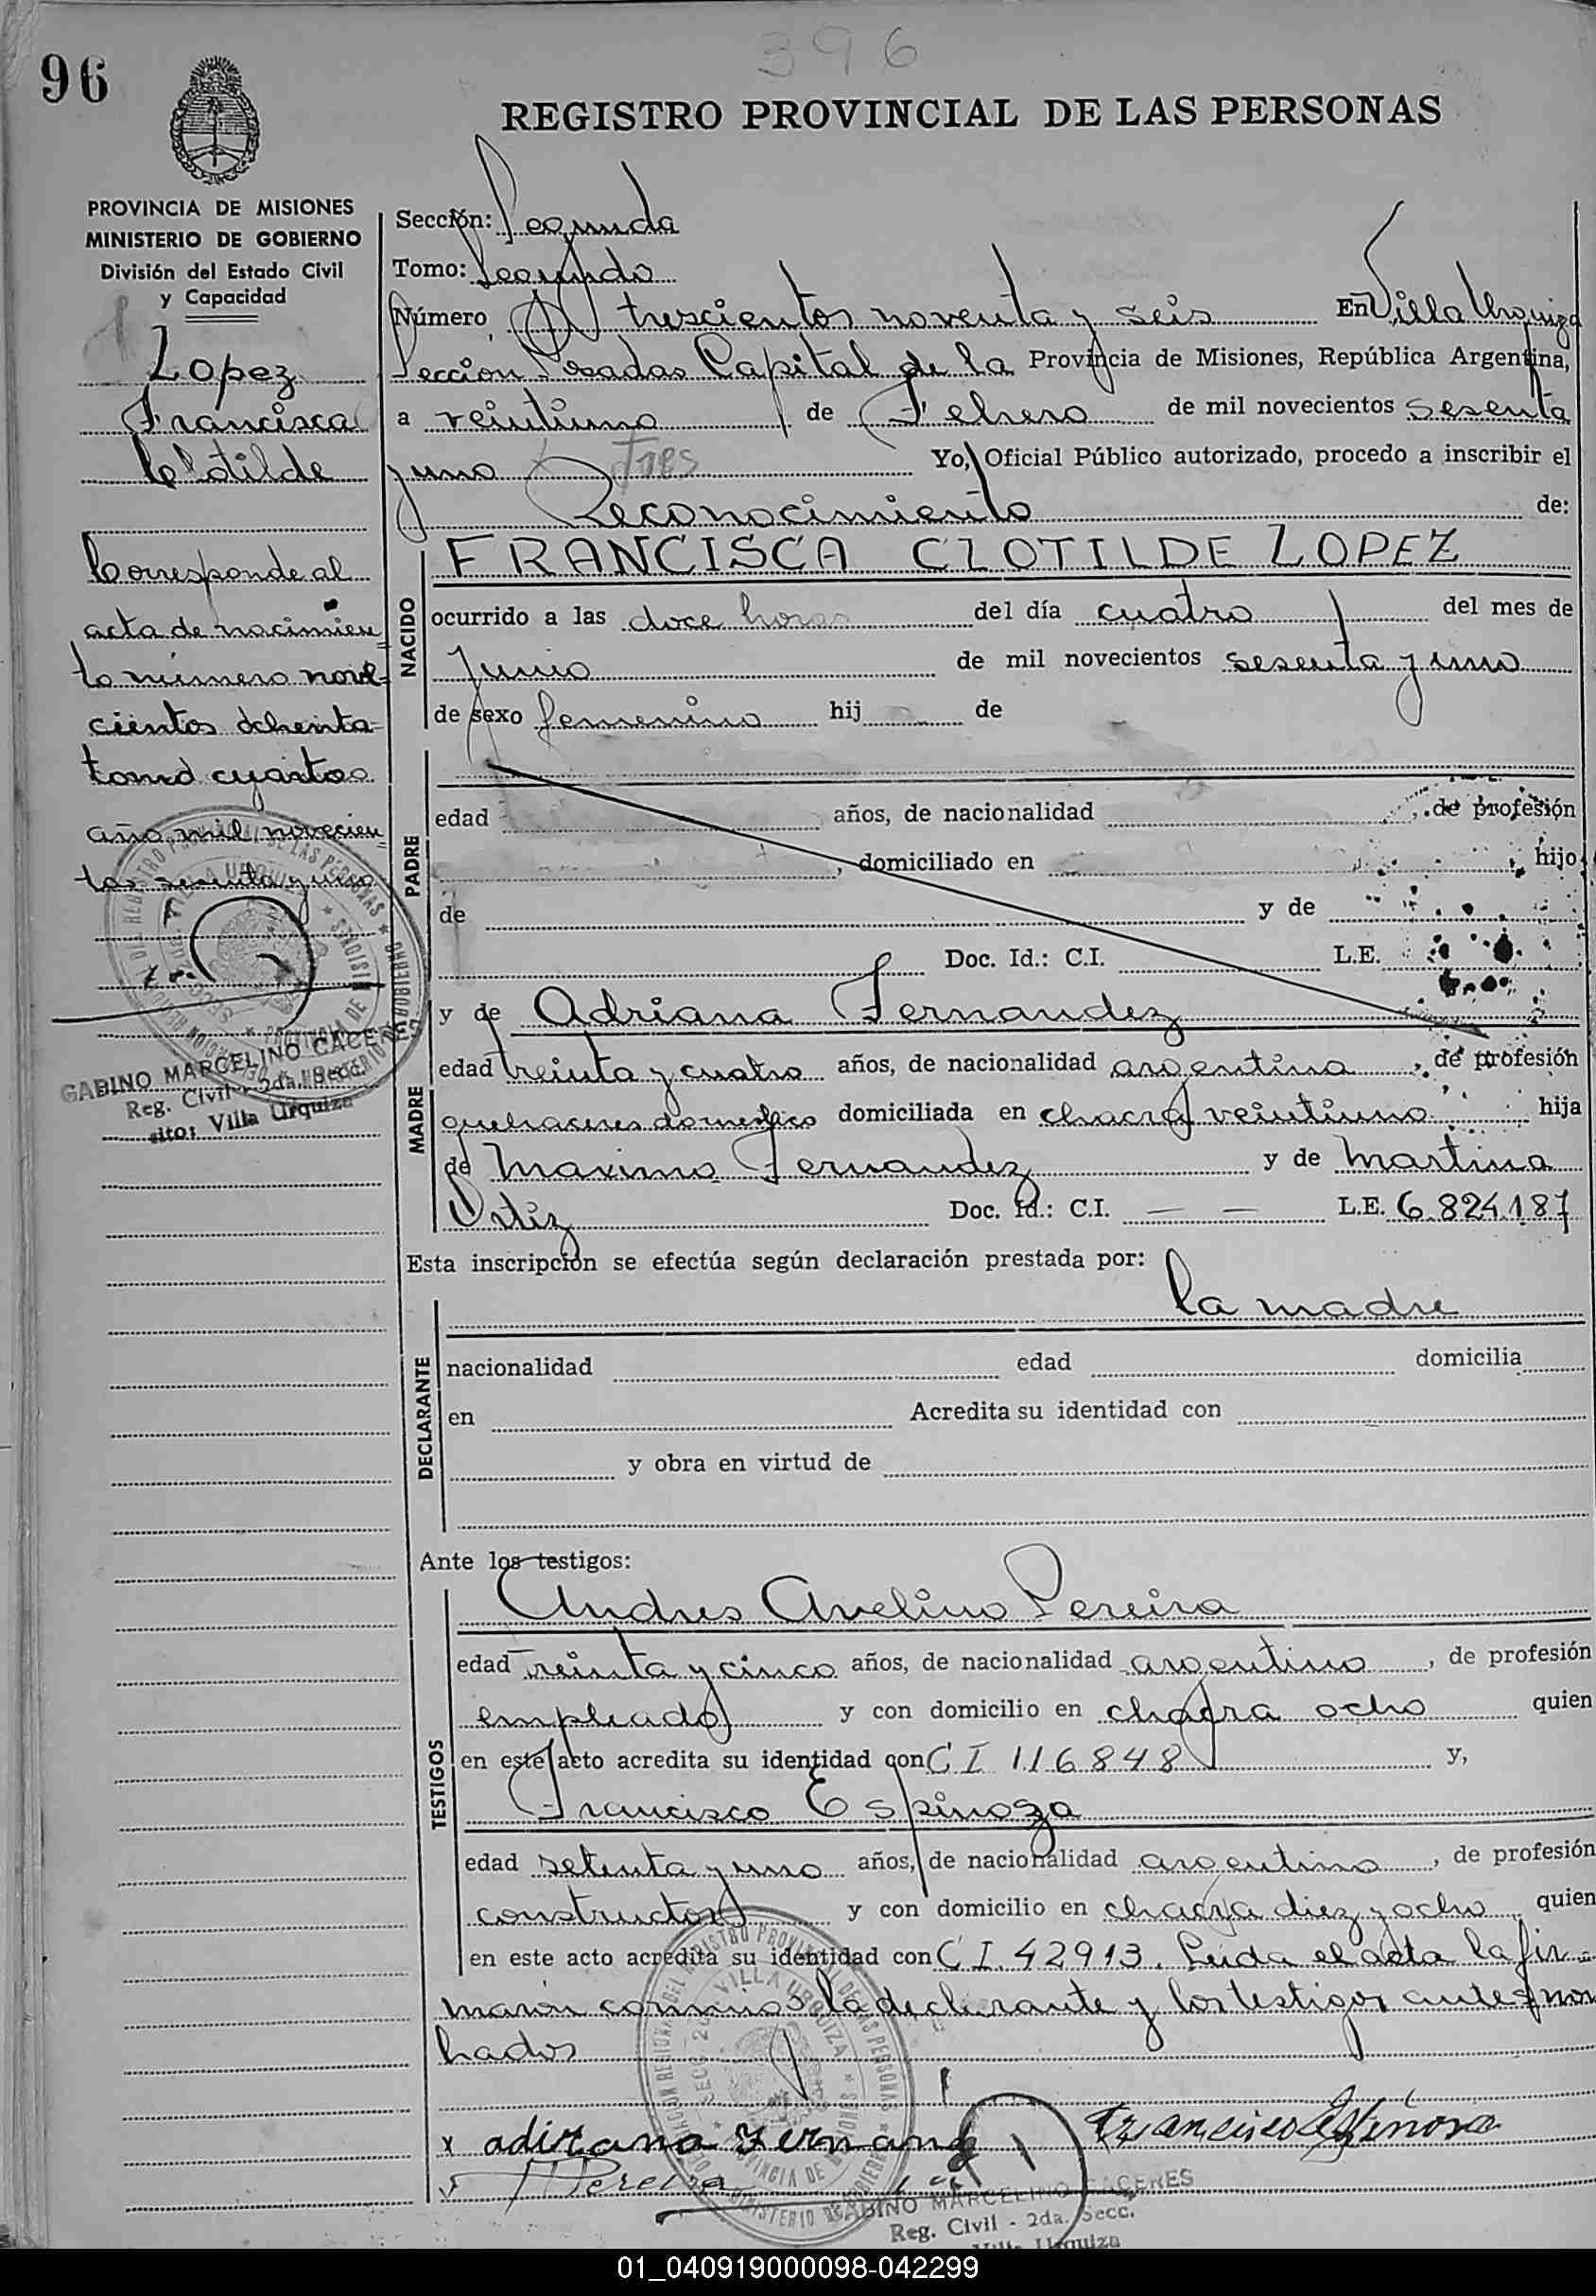 396
96
REGISTRO PROVINCIAL DE LAS PERSONAS
PROVINCIA DE MISIONES
MINISTERIO DE GOBIERNO
División del Estado Civil
y Capacidad
Lopez
Francisca
Clotilde
Corresponde al
acta de nacimien
to número nove
cientos ochenta
tomo cuarto
año mil novecien
tos sesenta y uno
GABINO MARCELINO CACERES
Reg. Civil - 2da. Secc.
Villa Urquiza
Sección: Segunda
Tomo: Segundo
Número trescientos noventa y seis En Villa Urquiza
Seccion Posadas Capital de la Provincia de Misiones, República Argentina,
a veintiuno de Febrero de mil novecientos sesenta
y uno tres Yo, Oficial Público autorizado, procedo a inscribir el
Reconocimiento de:
NACIDO
FRANCISCA CLOTILDE LOPEZ
ocurrido a las doce horas del día cuatro del mes de
Junio de mil novecientos sesenta y uno
de sexo femenino hij de
PADRE
edad años, de nacionalidad , de profesión
, domiciliado en , hijo
de y de
Doc. Id.: C.I. L.E.
MADRE
y de Adriana Fernandez
edad treinta y cuatro años, de nacionalidad argentina , de profesión
quehaceres domestico domiciliada en chacra veintiuno hija
de Maximo Fernandez y de Martina
Ortiz Doc. Id.: C.I. — — L.E. 6.824.187
Esta inscripción se efectúa según declaración prestada por:
DECLARANTE
la madre
nacionalidad edad domicilia
en Acredita su identidad con
y obra en virtud de
Ante los testigos:
TESTIGOS
Andres Avelino Pereira
edad treinta y cinco años, de nacionalidad argentino , de profesión
empleado y con domicilio en chacra ocho quien
en este acto acredita su identidad con C I 116848 y,
Francisco Espinoza
edad setenta y uno años, de nacionalidad argentino , de profesión
constructor y con domicilio en chacra diez y ocho quien
en este acto acredita su identidad con C I. 42913. Leida el acta la fir
maron conmigo la declarante y los testigos antes nom
brados
x adirana Fernand Francisco Espinosa
Pereira
GABINO MARCELINO CACERES
Reg. Civil - 2da. Secc.
Villa Urquiza
01_040919000098-042299